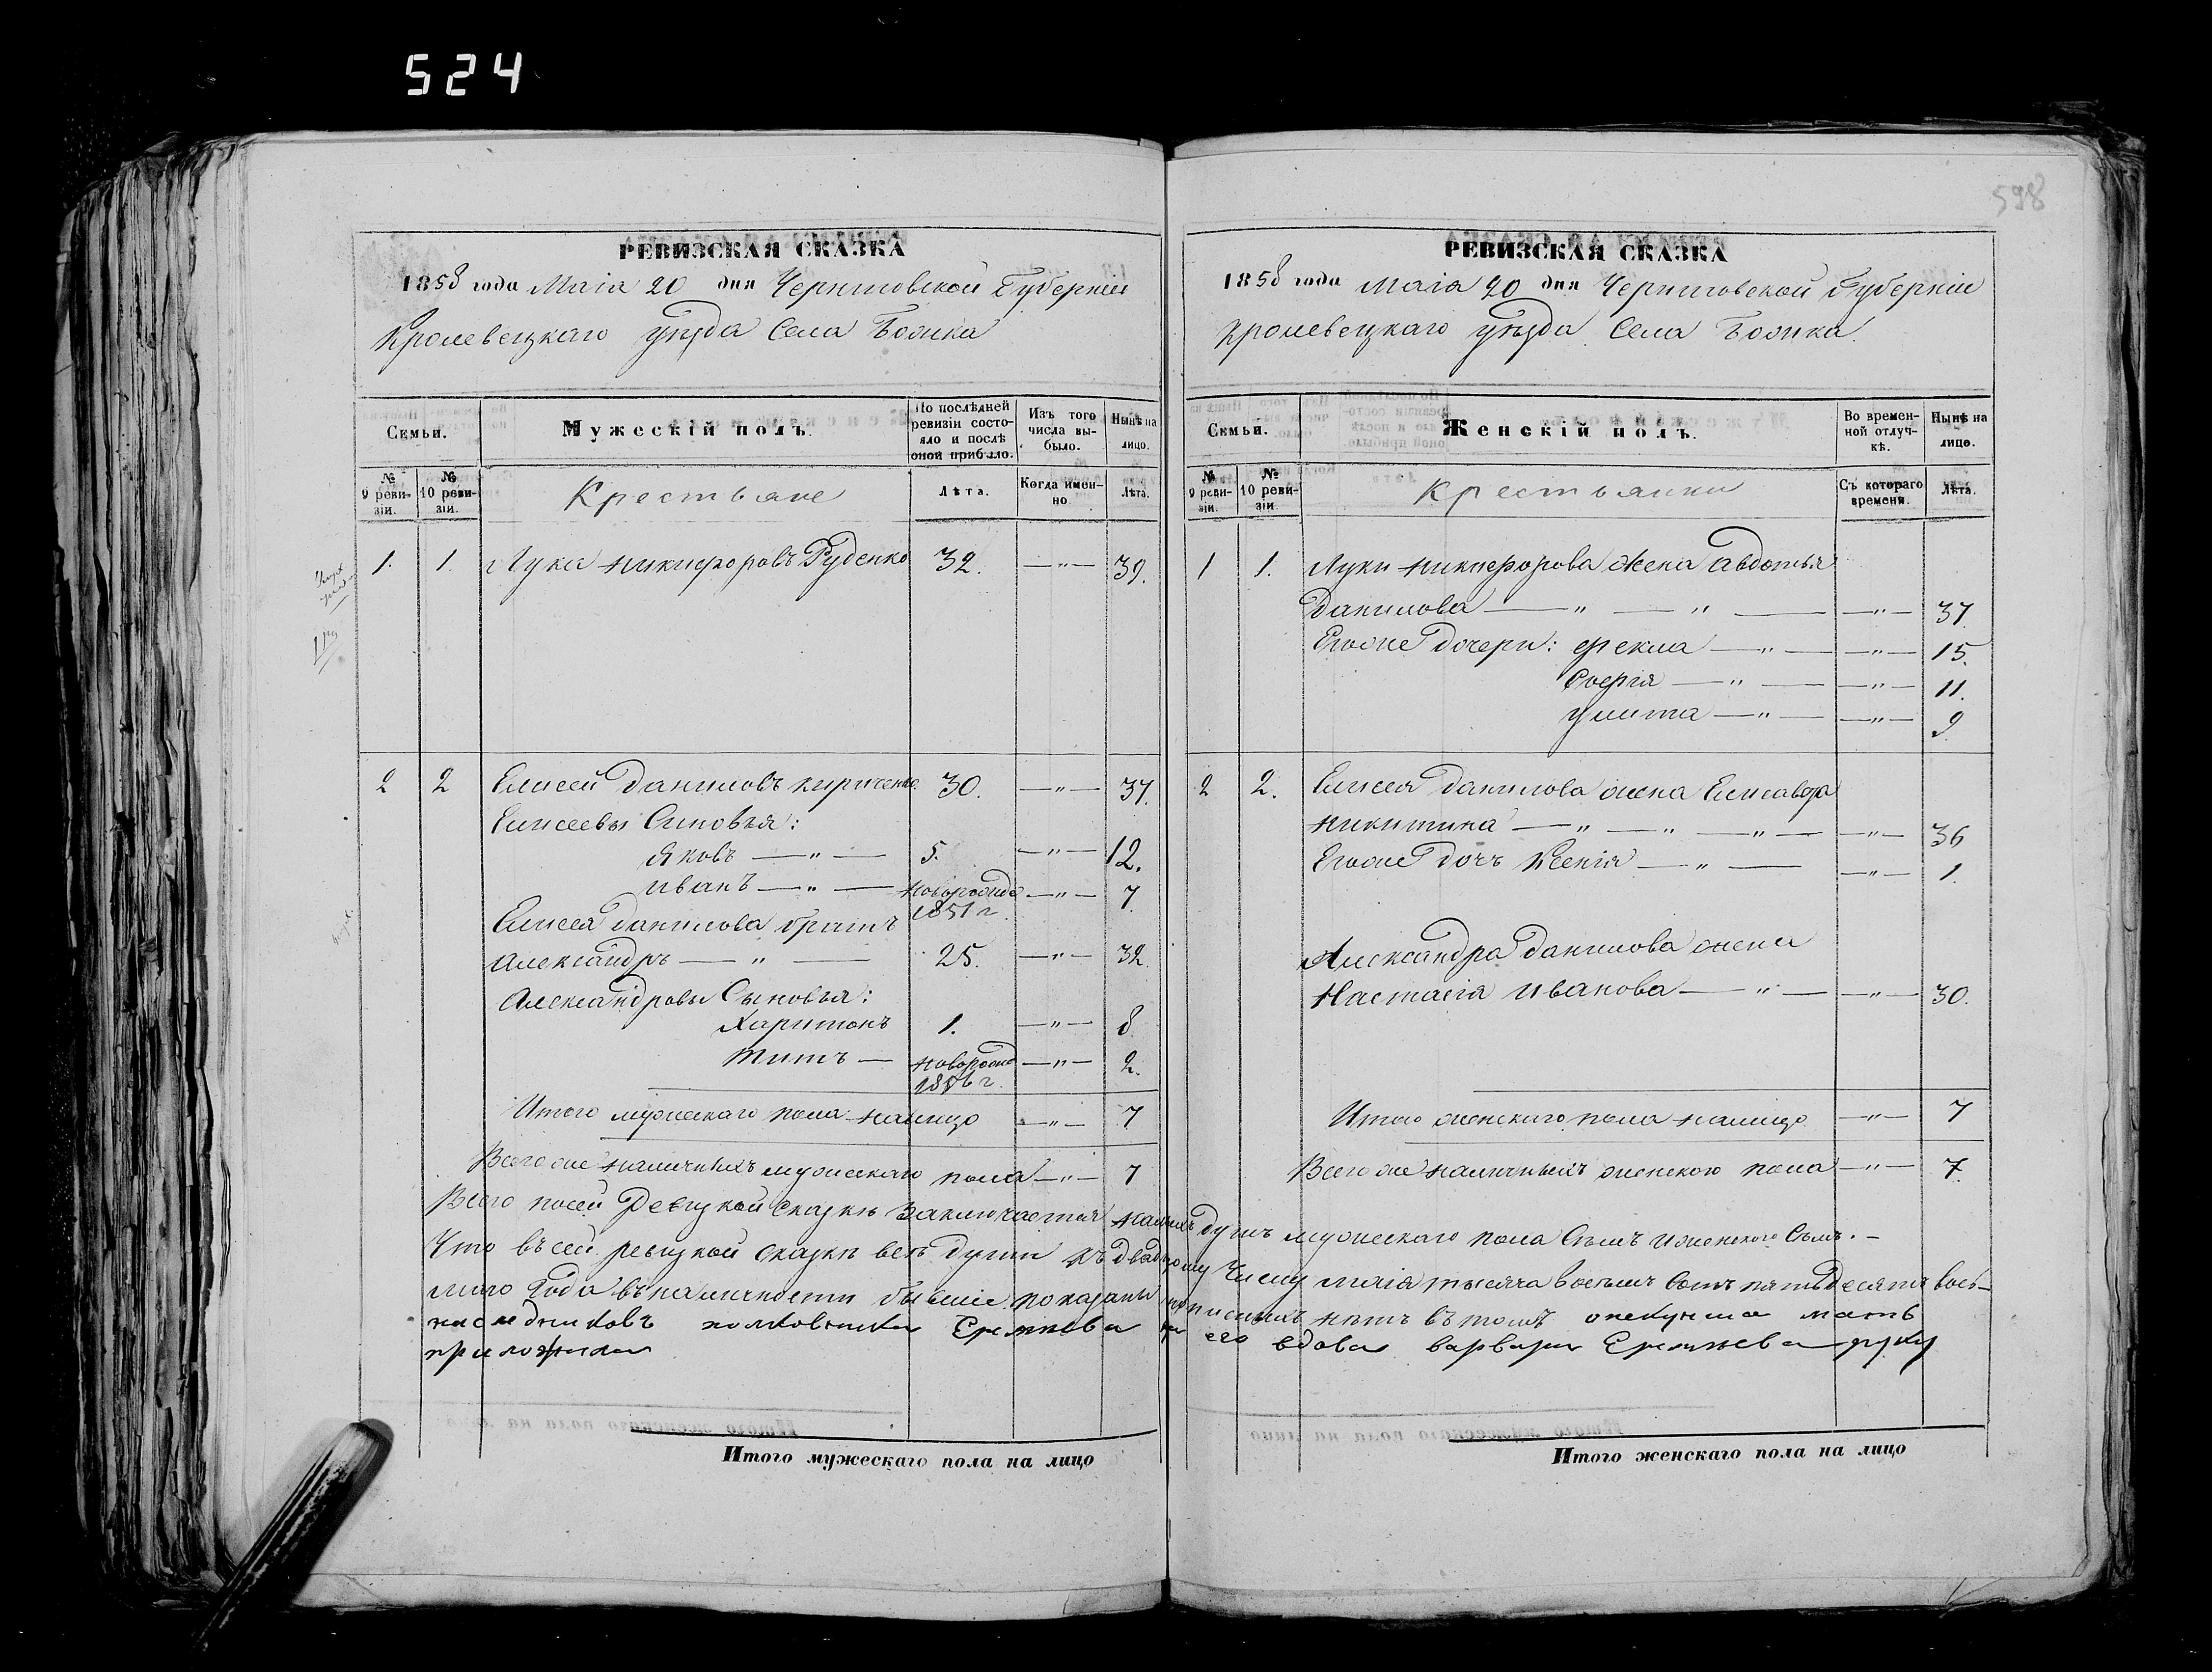 524
598
РЕВИЗСКАЯ СКАЗКА
1858 года Маія 20 дня Черниговской Губерніи
Кролевецкаго уѣзда Села
Семьи.
Мужескій полъ.
По послѣдней ревизіи состояло и послѣ оной прибыло.
Изъ того числа выбыло.
Нынѣ на лицо.
№ 9 ревизіи.
№ 10 ревизіи.
Крестьяне
Лѣта.
Когда именно
Лѣта.
1. 1. Лука Никифоровъ Руденко 32. —"— 39.
2 2 Елисей Даниловъ Кириченко 30. —"— 37.
Елисеевы Сыновья:
Яковъ —"— 5. —"— 12.
Иванъ —"— новорожд 1851 г. —"— 7
Елисея Данилова братъ
Александръ —"— 25. —"— 32.
Александровы Сыновья:
Харитонъ 1. —"— 8
Титъ — новорожд 1856 г. —"— 2.
Итого мужескаго пола налицо —"— 7
Всего же наличныхъ мужескаго пола —"— 7
РЕВИЗСКАЯ СКАЗКА
1858 года Маія 20 дня Черниговской Губерніи
Кролевецкаго уѣзда Села
Семьи.
Женскій полъ.
Во временной отлучкѣ.
Нынѣ на лицо.
№ 9 ревизіи.
№ 10 ревизіи.
Крестьянки
Съ котораго времени.
Лѣта.
1 1. Луки Никифорова жена Авдотья
Данилова —"—"— —"— 37
Егоже дочери: Фекла —"— —"— 15.
Софія —"— —"— 11.
Улита —"— —"— 9
2 2. Елисея Данилова жена Елисавфа
Никитина —"—"—"— —"— 36
Егоже дочь Ксенія —"— —"— 1.
Александра Данилова жена
Настасія Иванова —"— —"— 30.
Итого женскаго пола налицо —"— 7
Всего же наличныхъ женского пола —"— 7.
Всего посей Ревизкой сказкѣ заключается душъ мужескаго пола Сѣмъ и женского Сѣмъ. —
Что въ сей ревизкой сказкѣ всѣ души къ двадцатому Числу Маія тысяча восемъ сотъ пятьдесятъ вось-
мого Года въ наличности бывшіе показаны и прописныхъ нѣтъ въ томъ опекунша мать
наследниковъ полковника его вдова варвара руку
приложила
Итого мужескаго пола на лицо
Итого женскаго пола на лицо